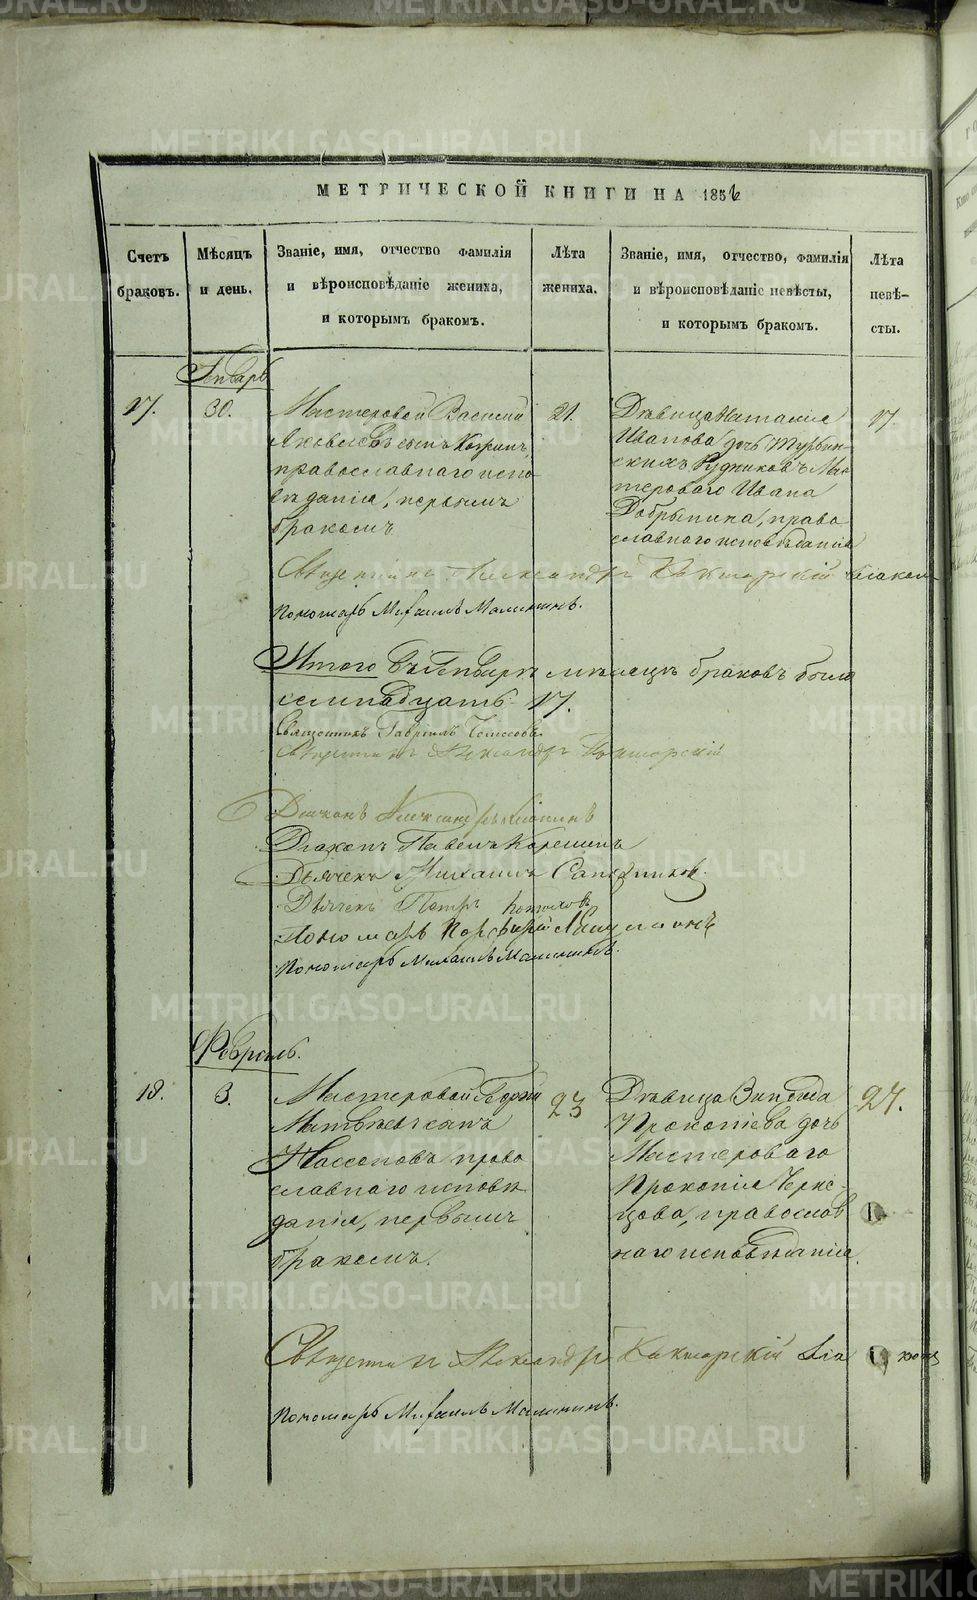 METRIKI.GASO-URAL.RU
МЕТРИЧЕСКОЙ КНИГИ НА 1856
Счетъ браковъ.
Мѣсяцъ и день.
Званіе, имя, отчество фамилія и вѣроисповѣданіе жениха, и которымъ бракомъ.
Лѣта жениха.
Званіе, имя, отчество, фамилія и вѣроисповѣданіе невѣсты, и которымъ бракомъ.
Лѣта невѣ-сты.
Генварь
17. 30.
Мастеровой Василій
Яковлевъ сынъ
православнаго испо
вѣданія, первымъ
бракомъ
21.
Дѣвица Наталія
Иванова дочь Турьин
скихъ Рудниковъ Мас
тероваго Ивана
Добрынина, право
славнаго исповѣданія
17.
Священникъ Александръ
Пономарь Михаилъ Малининъ.
Итого въ Генварѣ мѣсяцѣ браковъ было
семнадцать 17.
Священникъ Гавріилъ
Священникъ Александръ
Діаконъ Александръ
Діаконъ Павелъ
Дьячекъ Михаилъ Сапожниковъ.
Дьячекъ Петръ
Пономарь Порфирій
Пономарь Михаилъ Малининъ.
Февраль.
18. 3.
Мастеровой
Матвѣевъ сынъ
православнаго исповѣ
данія, первымъ
бракомъ.
23
Дѣвица Зинаида
Прокопіева дочь
Мастероваго
Прокопія Черне-
цова, православ
наго исповѣданія
24.
Священникъ Александръ
Пономарь Михаилъ Малининъ.